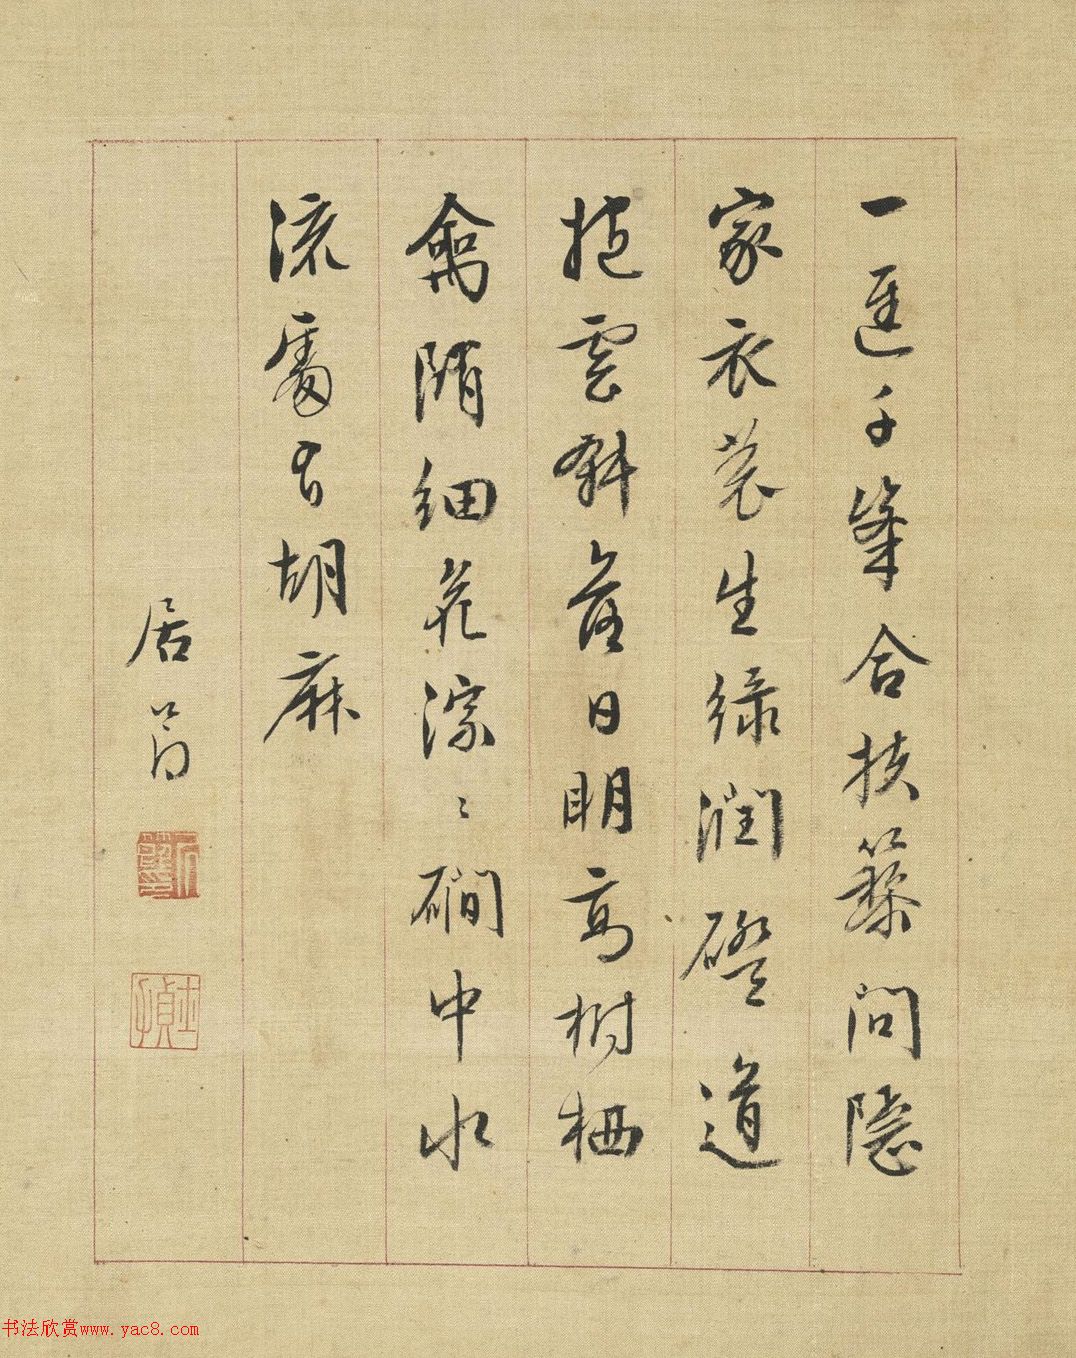 一逕千峯合扶藜問隱
家衣裳生綠潤磴道
抱雲斜落日明高樹栖
禽隋細花淙〻磵中水
流處有胡麻
居節
书法欣赏www.yac8.com